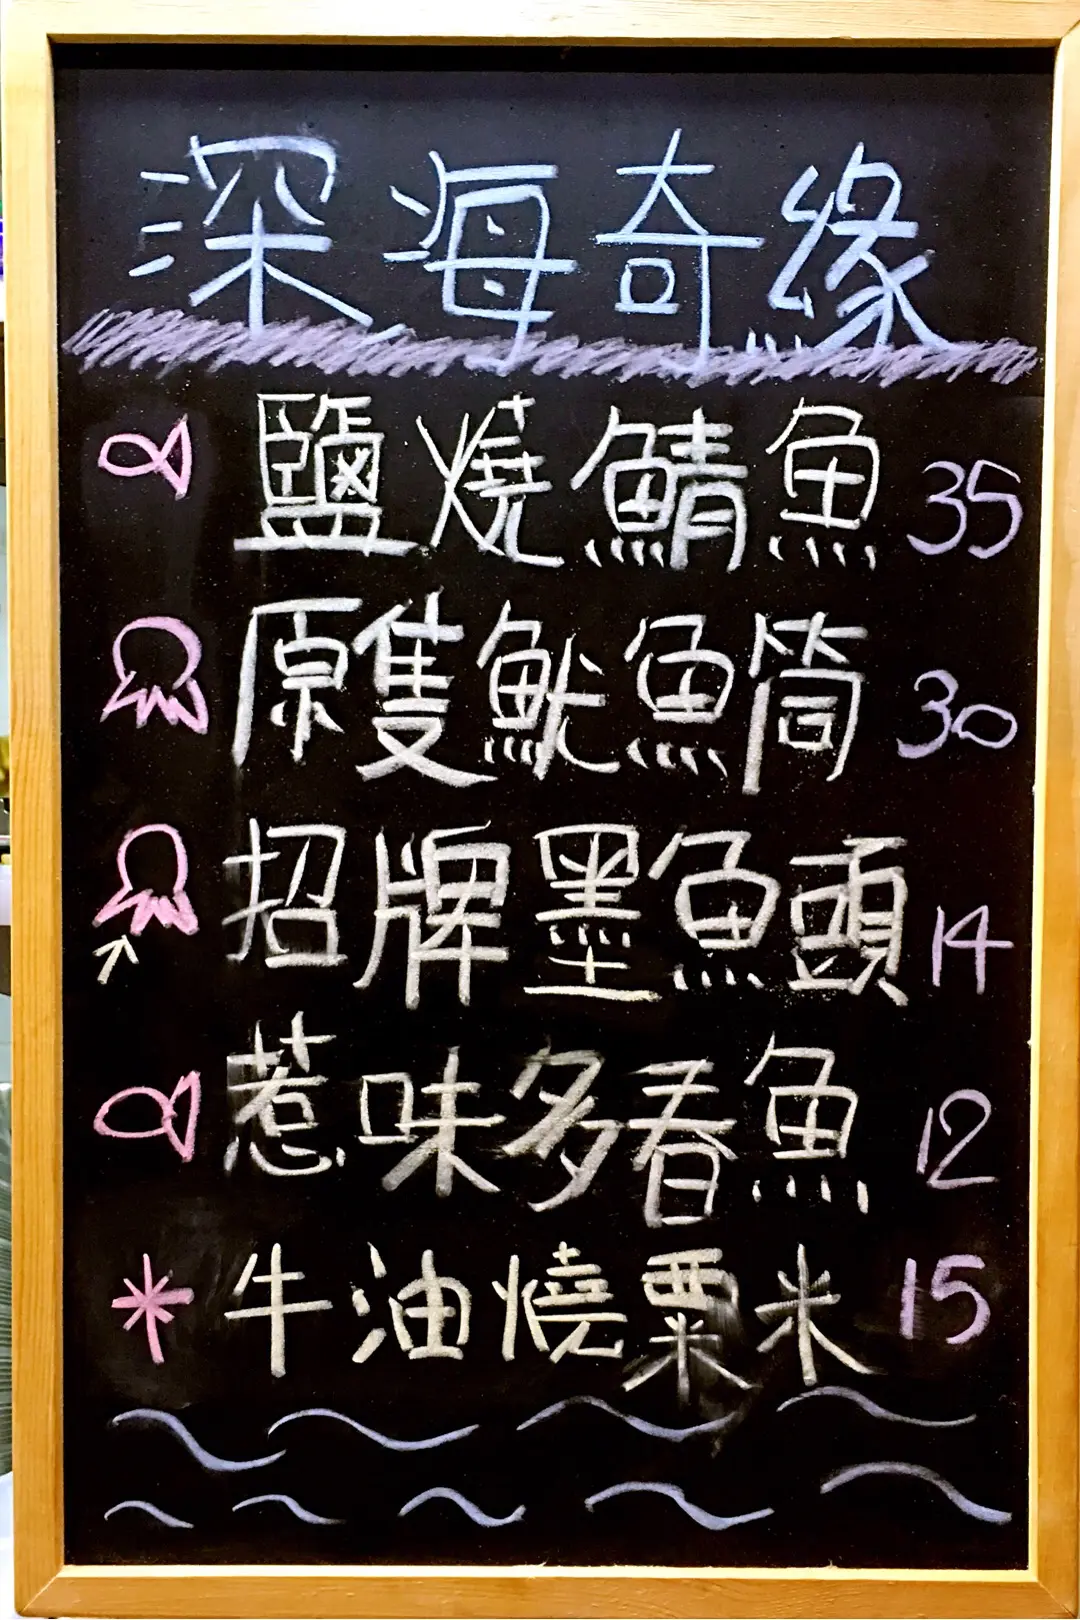 深海奇緣
鹽燒鯖魚 35
原隻魷魚筒 30
招牌墨魚頭 14
惹味多春魚 12
牛油燒粟米 15